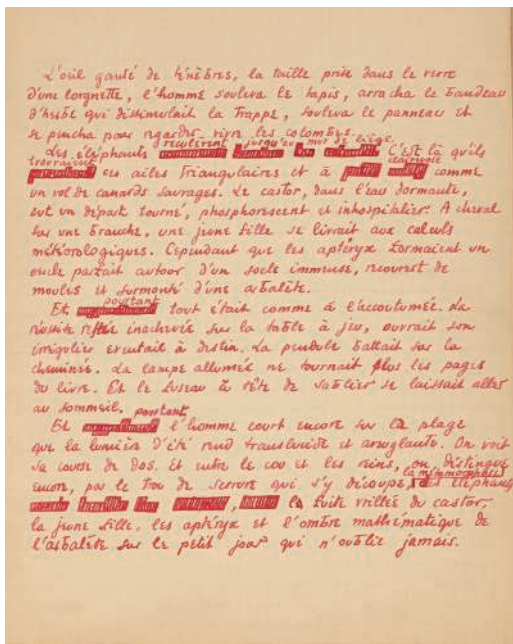 L'œil ganté de ténèbres, la taille prise dans le verre
d'une lorgnette, l'homme souleva le tapis, arracha le bandeau
d'herbe qui dissimulait la trappe, souleva le panneau et
se pencha pour regarder vivre les colombes.
reculèrent jusqu'au mur de liège.
Les éléphants C'est là qu'ils
trouvaient clairevoie
ces ailes triangulaires et à comme
un vol de canards sauvages. Le castor, dans l'eau dormante,
eut un départ tourné, phosphorescent et inhospitalier. A cheval
sur une branche, une jeune fille se livrait aux calculs
météorologiques. Cependant que les aptéryx formaient un
cercle parfait autour d'un socle immense, recouvert de
moules et surmonté d'une arbalète.
pourtant
Et tout était comme à l'accoutumée. La
réussite restée inachevée sur la table à jeu, ouvrait son
irrégulier éventail à destin. La pendule battait sur la
cheminée. La lampe allumée ne tournait plus les pages
du livre. Et le fuseau à tête de sablier se laissait aller
au sommeil.
pourtant
Et l'homme court encore sur la plage
que la lumière d'été rend translucide et aveuglante. On voit
sa course de dos. Et entre le cou et les reins, on distingue
la métamorphose
encore, par le trou de serrure qui s'y découpe, des éléphants
la fuite vrillée du castor,
la jeune fille, les aptéryx et l'ombre mathématique de
l'arbalète sur le petit jour qui n'oublie jamais.